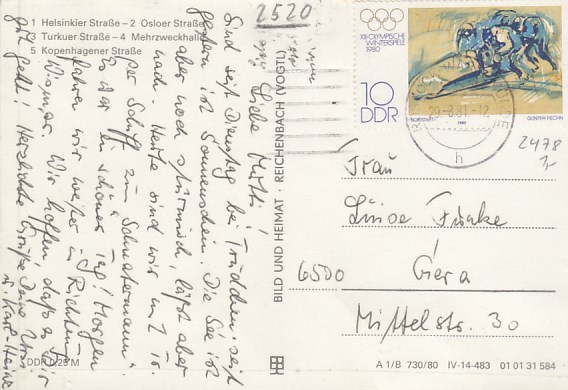 1 Helsinkier Straße – 2 Osloer Straße
3 Turkuer Straße – 4 Mehrzweckhalle
5 Kopenhagener Straße
2520
Liebe Mutti!
Sind seit Dienstag bei Trudchen. seit
gestern ist Sonnenschein. Die See ist
aber noch stürmisch, läßt aber
nach. Heute sind wir m. I. v.
per Schiff zum "Schnatermann".
Es war ein schöner Tag! Morgen
fahren wir weiter in Richtung
Wismar. Wir hoffen, daß es Dir
gut geht! Herzliche Grüße Deine
u. Karl-Heinz
DDR 0,25 M
BILD UND HEIMAT · REICHENBACH (VOGTL)
XIII. OLYMPISCHE
WINTERSPIELE
1980
10
DDR
1980
h
2478
1,-
Frau
Luise Funke
6500 Gera
Mittelstr. 30
A 1/B 730/80 IV-14-483 01 01 31 584